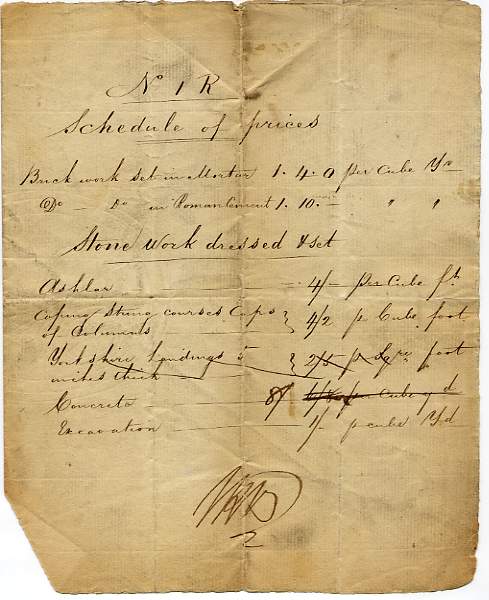 No 1 R
Schedule of prices
Brick work set in Mortar 1. 4. 0 per Cube Yd
Do — Do in Roman Cement 1. 10. — " "
Stone Work dressed & set
Ashlar 4/- per Cube ft
Coping String courses Caps
of Columns } 4/2 p Cube foot
Yorkshire Landings 5
inches thick } 2/5 p Sqre foot
Concrete 8/ per Cube yd
Excavation 1/- p cube Yd